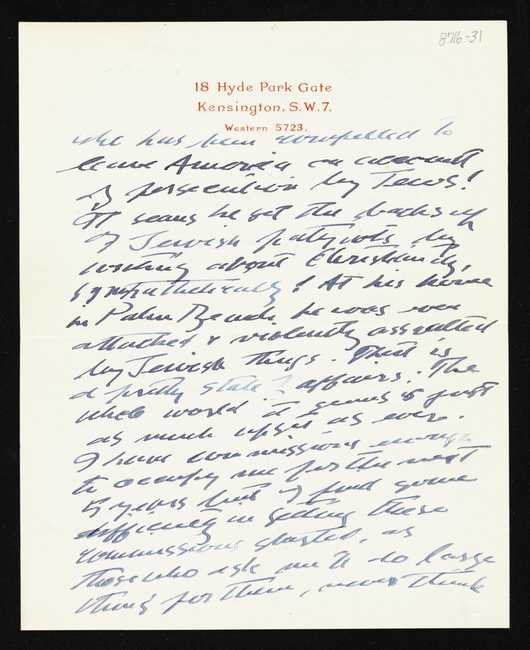 876-31
18 Hyde Park Gate
Kensington, S.W.7.
Western 5723.
who has been compelled to
leave America on account
of persecution by Jews!
It seems he got the backs up
of Jewish patriots by
writing about Christianity,
sympathetically! At his home
in Palm Beach he was even
attacked & violently assaulted
by Jewish thugs. This is
a pretty state of affairs. The
whole world it seems is just
as much upset as ever.
I have commissions enough
to occupy me for the next
5 years but I find some
difficulty in getting these
commissions started, as
those who ask me to do large
things for them, never think